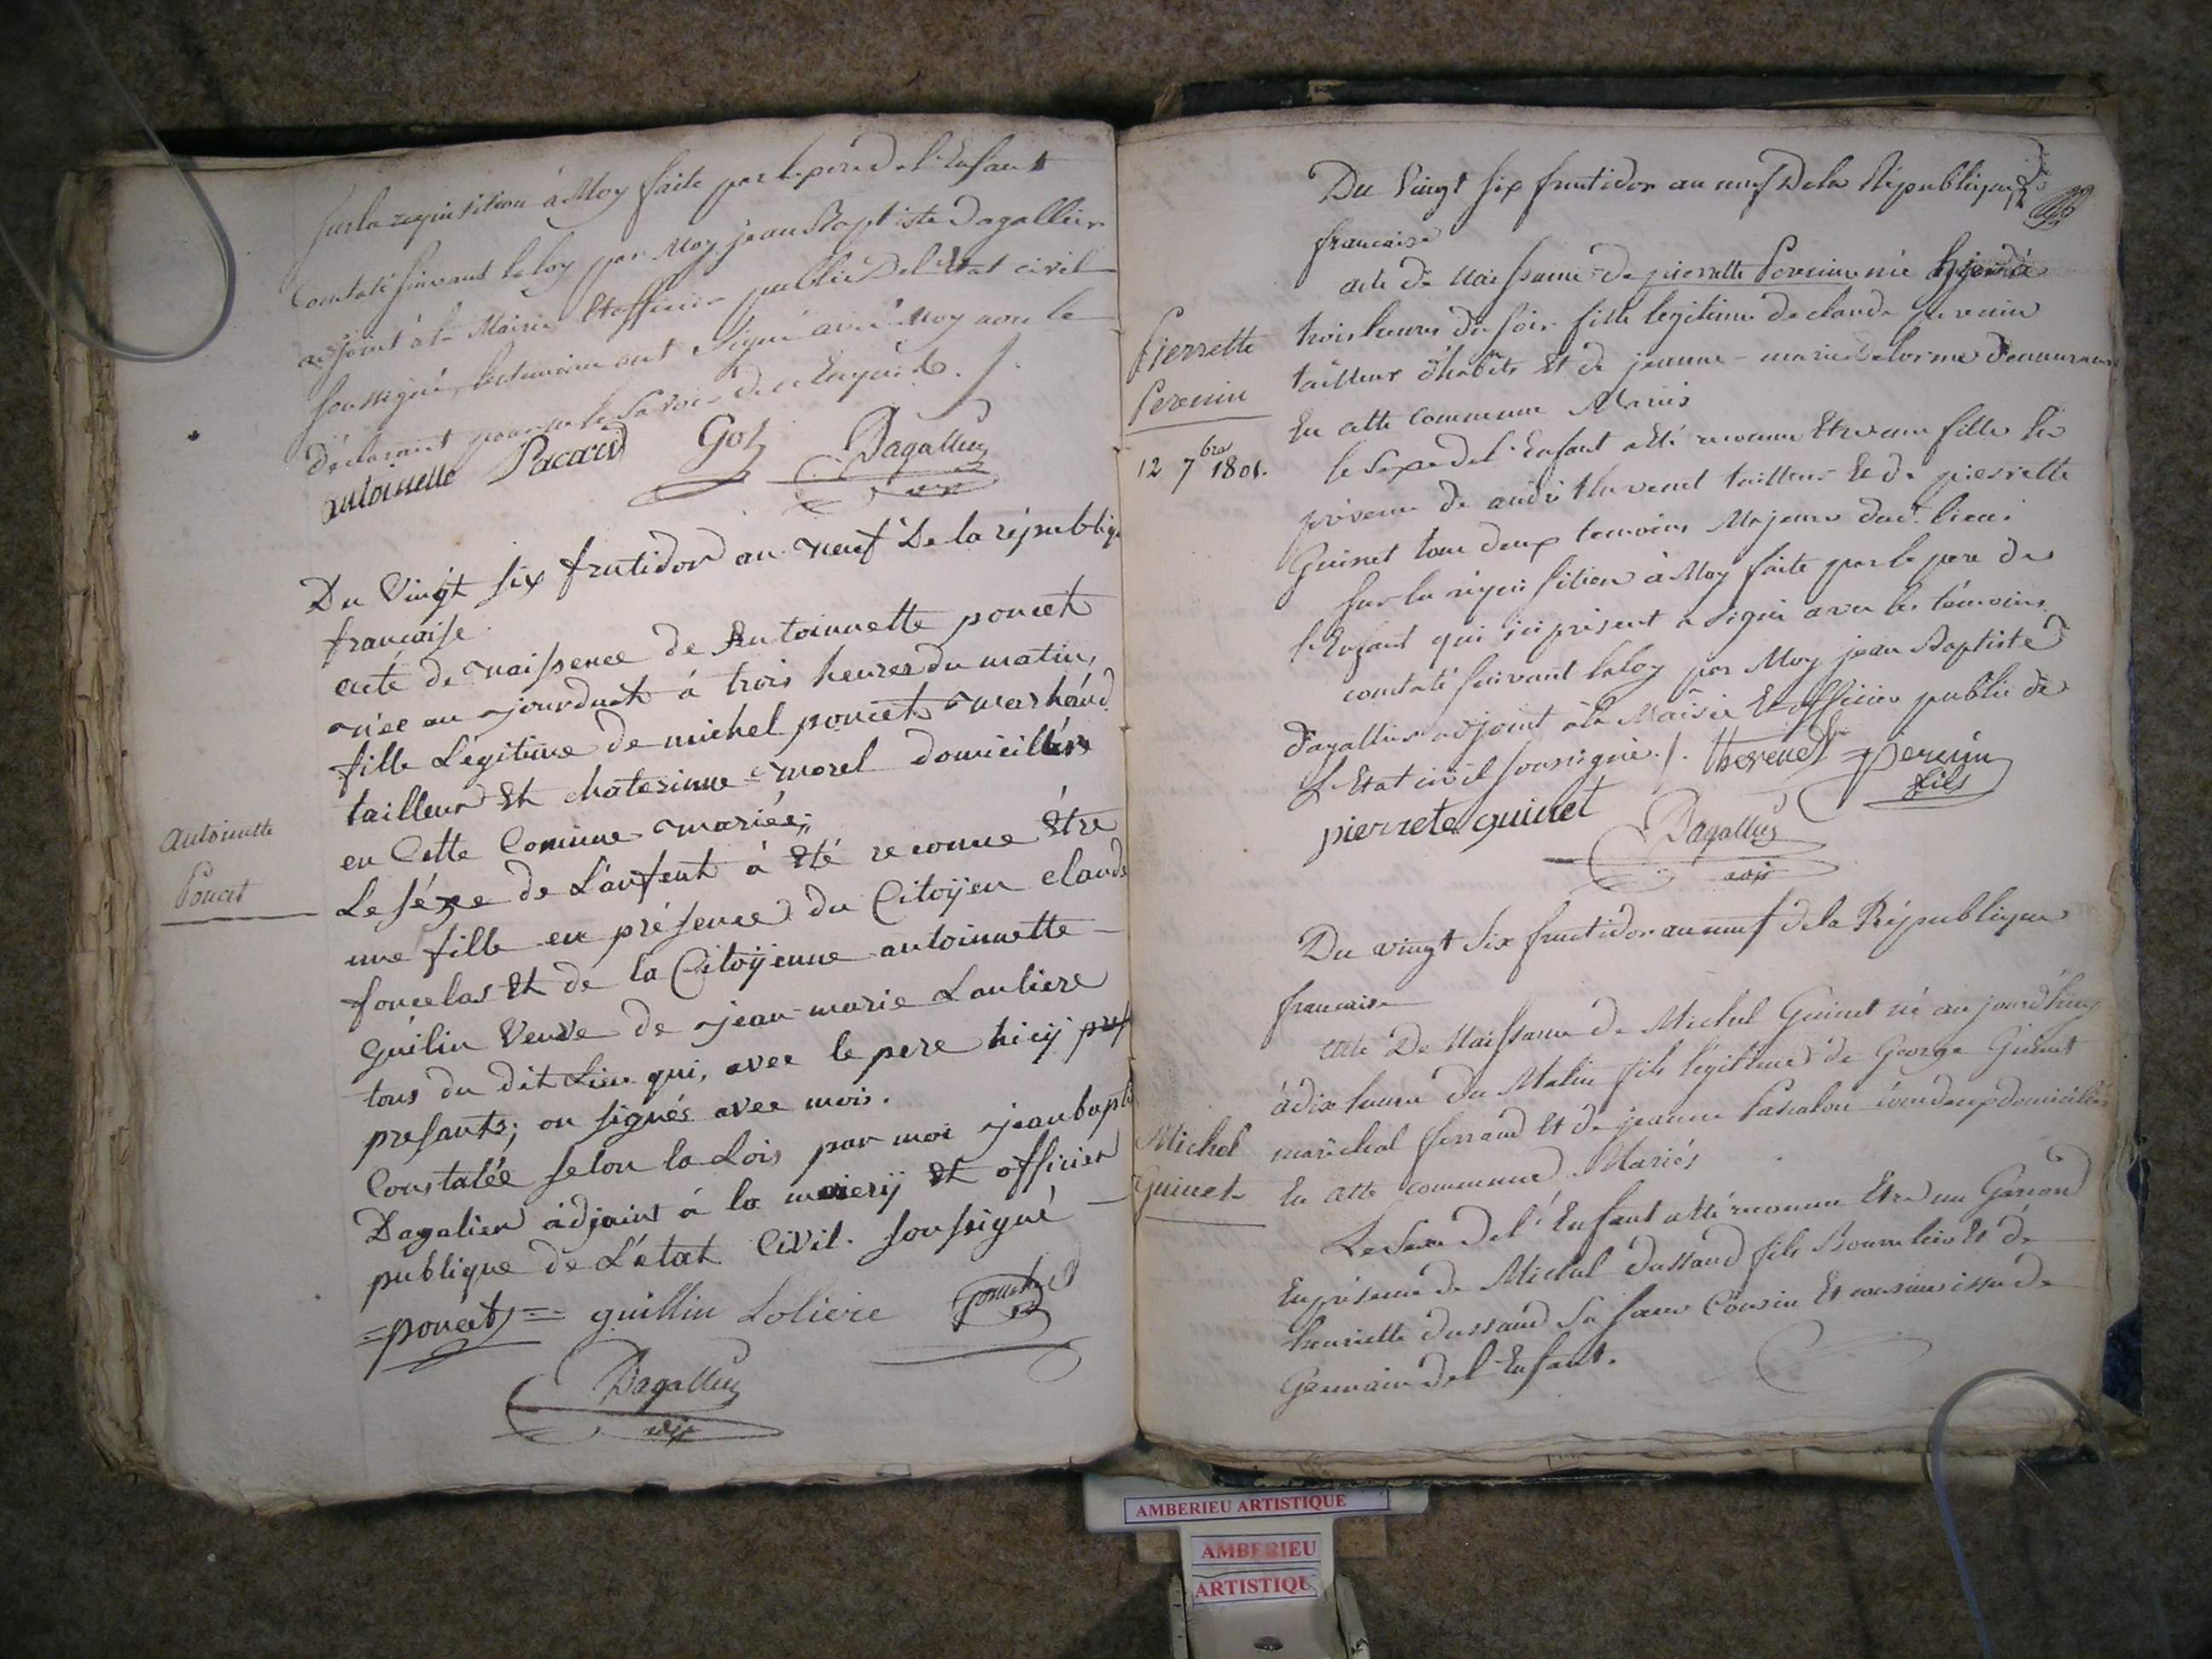 Sur la requisition à Moy faite par le pere de l'Enfant
Constaté suivant la loy par Moy jean Baptiste Dagallier
adjoint à la Mairie Et officier public De l'Etat civil
soussigné, les temoins ont signé avec Moy non le
déclarant pour ne le savoir de ce Enquis ./.
antoinette Pacard Goy Dagallier
adjt
Du Vingt six frutidor an neuf De la républiq
francoise
acte de naissence de Antoinnette poncet
née au jourduit à trois heures du matin,
fille Legitime de michel poncet marchand
tailleur Et chaterinne morel domiciliés
en Cette Comune mariée;
Antoinette
Poncet
Le séxe de L'anfent à été reconue être
une fille en présence du Citoÿen claude
foncelas Et de la Citoÿenne antoinnette
Guilin Veuve de jean-marie Lauliere
tous du dit Lieu qui, avec le pere hicÿ
presants; on signés avec mois.
Constatée selon la Lois par moi jean bapti
Dagalier adjoint à la mairiÿ Et officier
publique de L'état Civil. soussigné
=poncet= guillin Loliere
Dagallier
adjt
Du Vingt six frutidor an neuf De la République
francaise
acte de Naissance de pierrette Perenin née
Pierrette
Perenin
12 7bre 1801.
trois heures du soir fille legitime de claude perenin
tailleur d'habits Et de jeanne-marie delorme demeurant
En cette commune Mariés
le Sexe de l'Enfant a Eté reconnu Etre une fille En
présence de andré thevenet tailleur Et de pierrette
Guinet tous deux temoins Majeurs dud. lieu.
Sur la réquisition à Moy faite par le pere de
l'Enfant qui ici présent a signé avec les témoins
constaté suivant la loy par Moy jean Baptiste
Dagallier adjoint à la Mairie Et officier public de
l'Etat civil soussigné ./. thevenet =perenin
fils
pierrete guinet
Dagallier
adjt
Du vingt Six fructidor an neuf de la République
francaise
acte De Naissance de Michel Guinet né au jourd'huy
à dix heures du Matin fils légitime de George Guinet
Michel
Guinet
maréchal ferrand Et de jeanne Pascalon tous deux domiciliés
En cette commune Mariés
Le Sexe de l'Enfant a Eté reconnu Etre un Garcon
En présence de Michel dussaud fils Et de
henriette dussaud Sa soeur Cousin Et cousine issu de
Germain de l'Enfant.
AMBERIEU ARTISTIQUE
AMBERIEU
ARTISTIQU